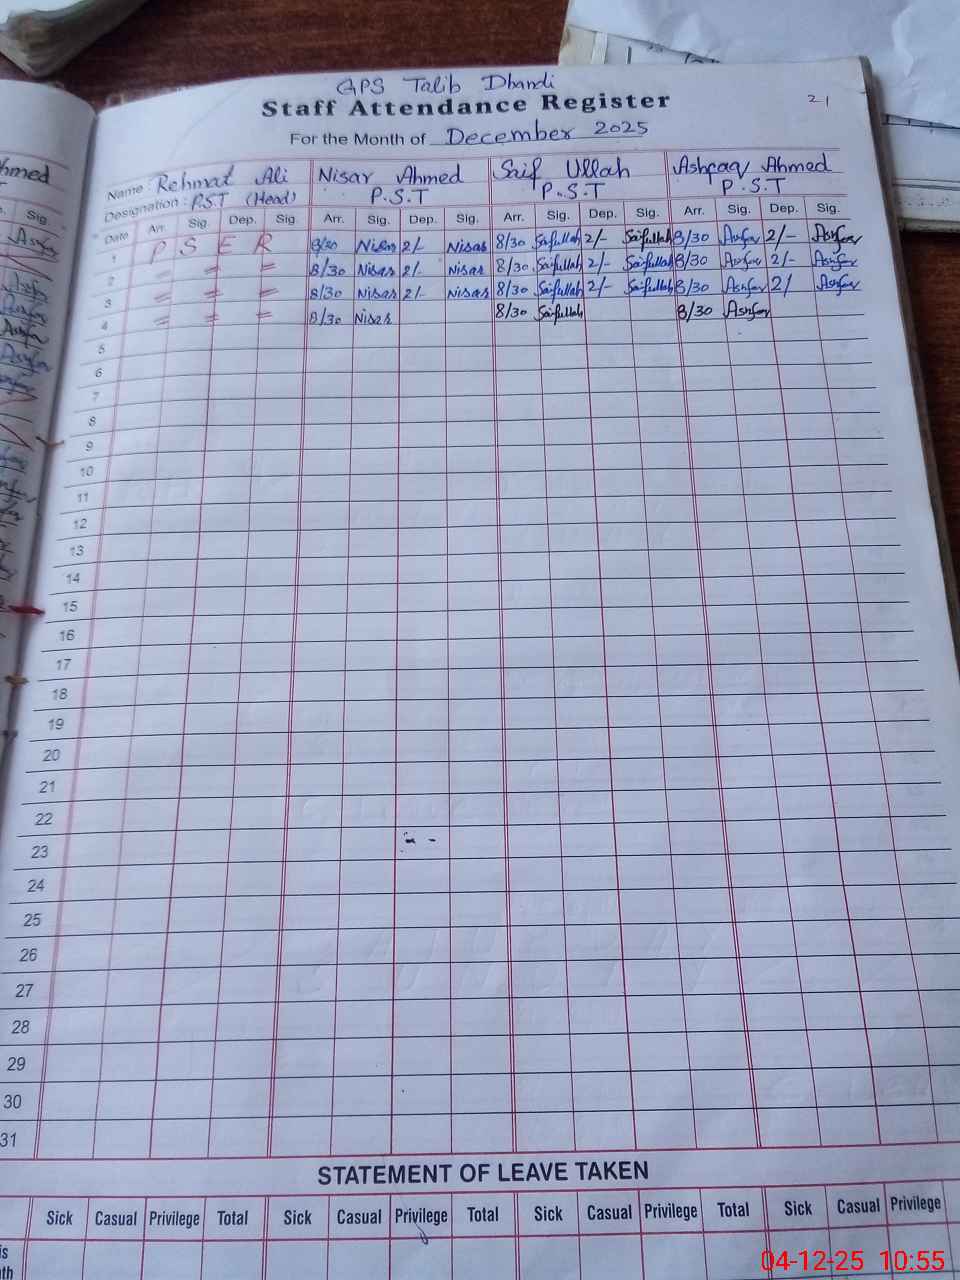 GPS Talib Dhandi
Staff Attendance Register
21
For the Month of December 2025
Name : Rehmat Ali Nisar Ahmed Saif Ullah Ashfaq Ahmed
Designation : P.S.T (Head) P.S.T P.S.T P.S.T
Date Arr. Sig. Dep. Sig. Arr. Sig. Dep. Sig. Arr. Sig. Dep. Sig. Arr. Sig. Dep. Sig.
1 P S E R 8/30 Nisar 2/- Nisar 8/30 Saifullah 2/- Saifullah 8/30 Ashfaq 2/- Ashfaq
2 = = = 8/30 Nisar 2/- Nisar 8/30 Saifullah 2/- Saifullah 8/30 Ashfaq 2/- Ashfaq
3 = = = 8/30 Nisar 2/- Nisar 8/30 Saifullah 2/- Saifullah 8/30 Ashfaq 2/ Ashfaq
4 = = = 8/30 Nisar 8/30 Saifullah 8/30 Ashfaq
5
6
7
8
9
10
11
12
13
14
15
16
17
18
19
20
21
22
23
24
25
26
27
28
29
30
31
STATEMENT OF LEAVE TAKEN
Sick Casual Privilege Total Sick Casual Privilege Total Sick Casual Privilege Total Sick Casual Privilege
04-12-25 10:55